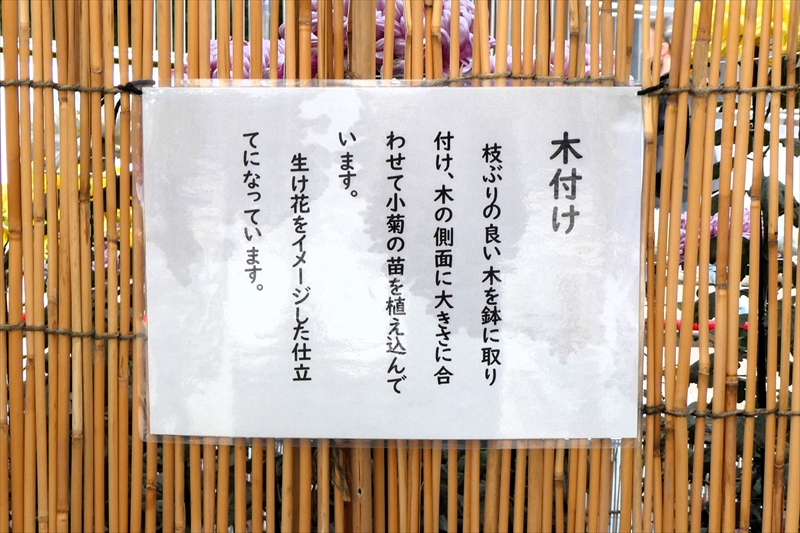 木付け
枝ぶりの良い木を鉢に取り
付け、木の側面に大きさに合
わせて小菊の苗を植え込んで
います。
生け花をイメージした仕立
てになっています。